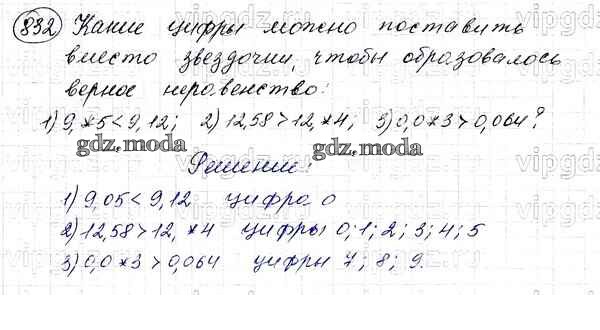 832 Какие цифры можно поставить
вместо звездочки, чтобы образовалось
верное неравенство:
1) 9,*5<9,12; 2) 12,58>12,*4; 3) 0,0*3>0,064?
gdz.moda gdz.moda
Решение:
1) 9,05<9,12 цифра 0
2) 12,58>12,*4 цифры 0; 1; 2; 3; 4; 5
3) 0,0*3>0,064 цифры 7; 8; 9.